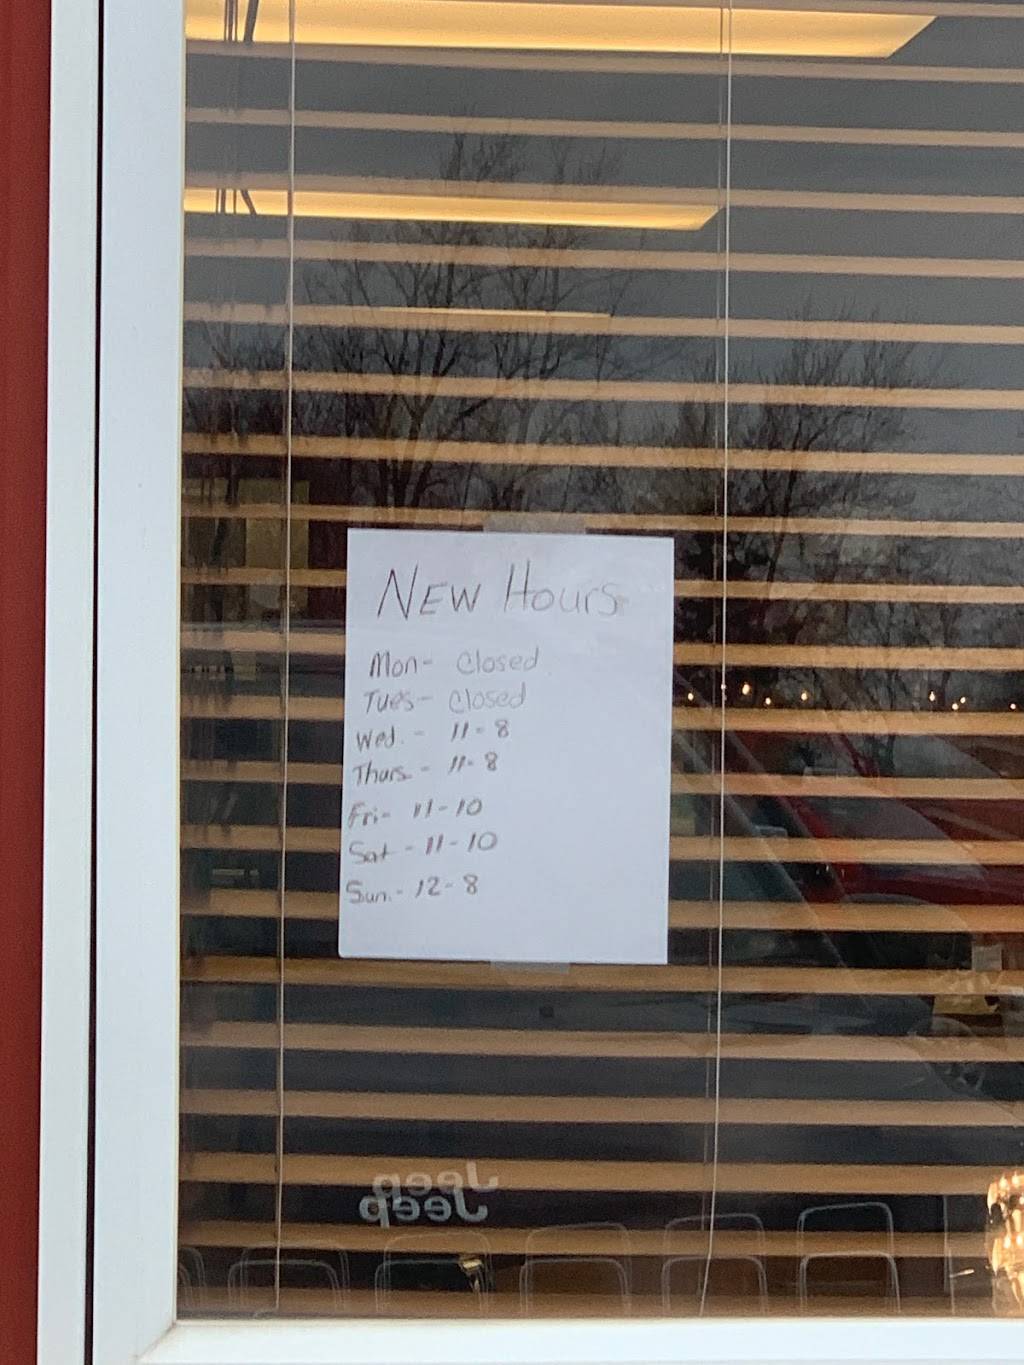 New Hours
Mon- Closed
Tues- Closed
Wed. - 11-8
Thurs - 11-8
Fri- 11-10
Sat - 11-10
Sun. - 12-8
Jeep
Jeep